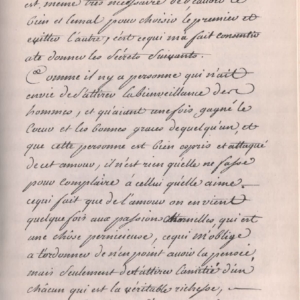 est, meme tres necessaire de scavoir le
bien et lemal pour choisir le premier et
eviter l'autre, c'est ce qui ma fait consentir
ate donner les Secrets Suivants.
Comme il ny a personne qui n'ait
envie de s'attirer la bienveillance des
hommes, et qu'aiant une fois gagné le
Coeur et les bonnes graces dequelqu'un, et
que cette personne est bien eprise et attaqué
de cet amour, il n'est rien qu'elle ne fasse
pour complaire à cellui qu'elle aime.
ce qui fait que de l'amour on en vient
quelque fois aux passion charnelles, qui est
une chose pernicieuse, ce qui m'oblige
a t'ordonner de n'en point avoir la pensée,
mais seulement de t'attirer l'amitié d'un
chacun qui est la veritable richesse,